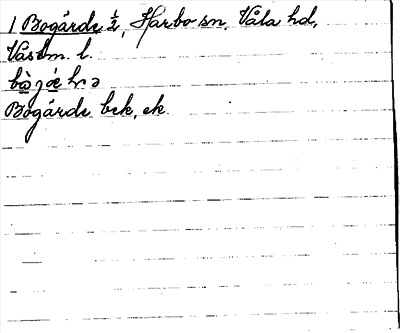 1 Bogärde ½, Harbo sn, Våla hd,
Västm. l.
Bogärde bek, ek.